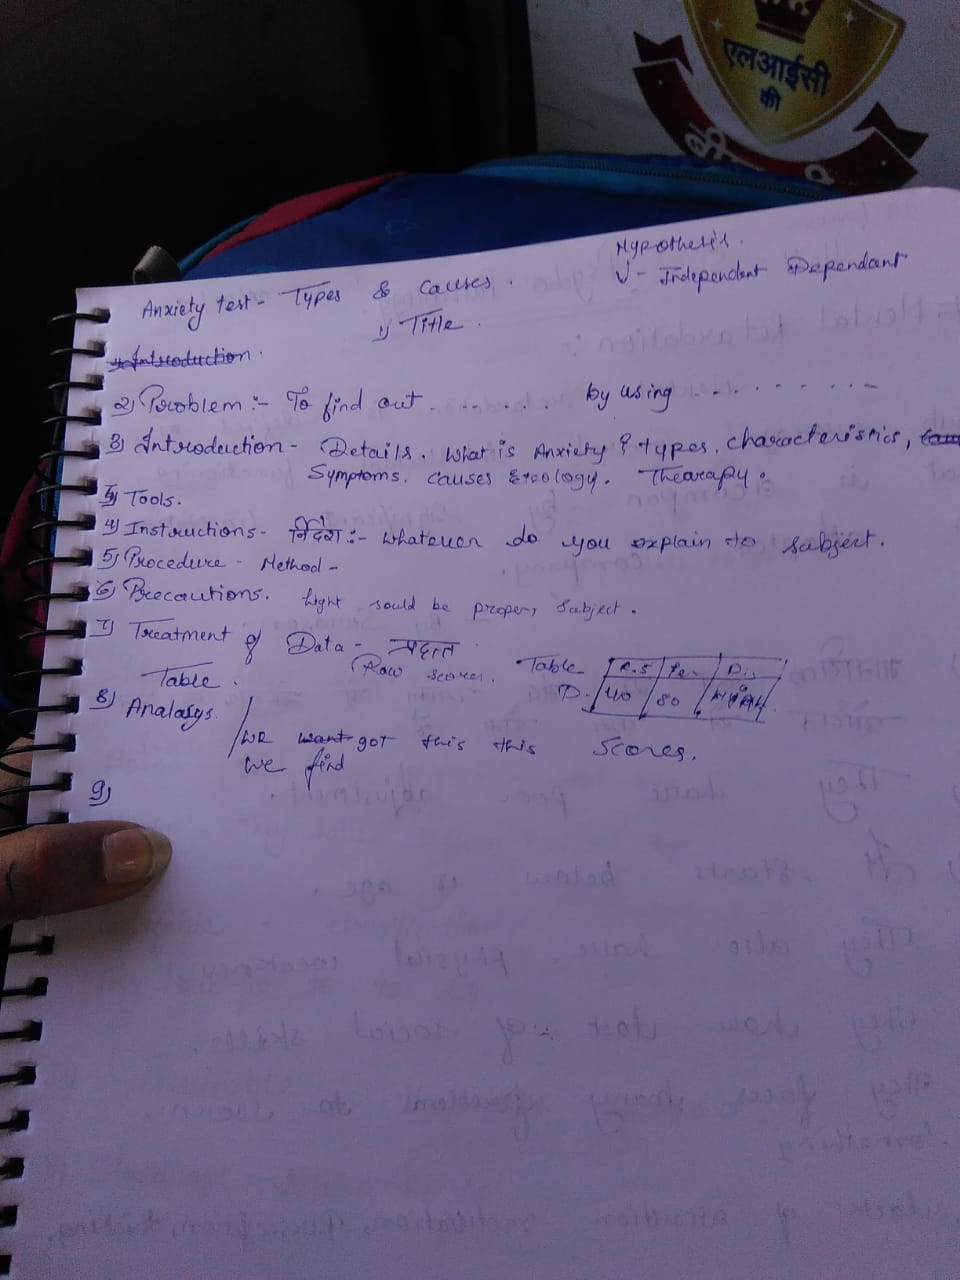 एलआईसी
की
Hypothesis.
Anxiety test- Types & Causes.
V- Independant Dependant
1) Title.
Introduction.
2) Problem:- To find out ........ by using ........
3) Introduction- Details. What is Anxiety? types, characteristics,
Symptoms. Causes Eteology. Thearapy.
5) Tools.
4) Instructions- निर्देश:- Whatever do you explain to subject.
5) Procedure- Method-
6) Precautions. Light sould be proper, subject.
7) Treatment of Data- प्रदत्त
Table. Raw scores. Table R.S Per Dis
8) Analasys. D. 40 80 HIGH
We want got this this Scores.
We find
9)